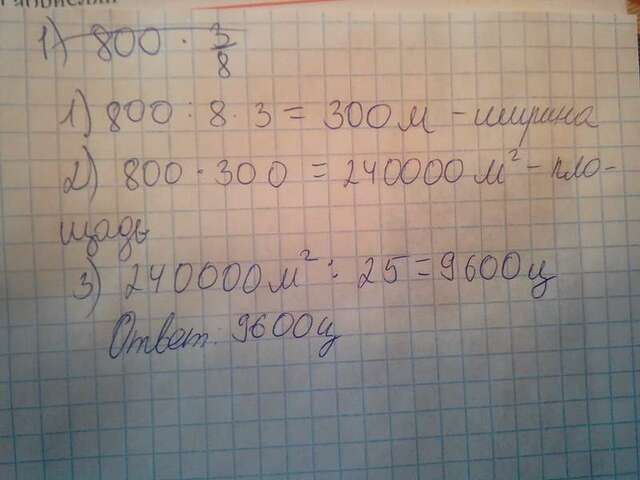 1) 800 · 3/8
1) 800 : 8 · 3 = 300 м - ширина
2) 800 · 300 = 240000 м² - пло-
щадь
3) 240000 м² : 25 = 9600 ц
Ответ: 9600 ц